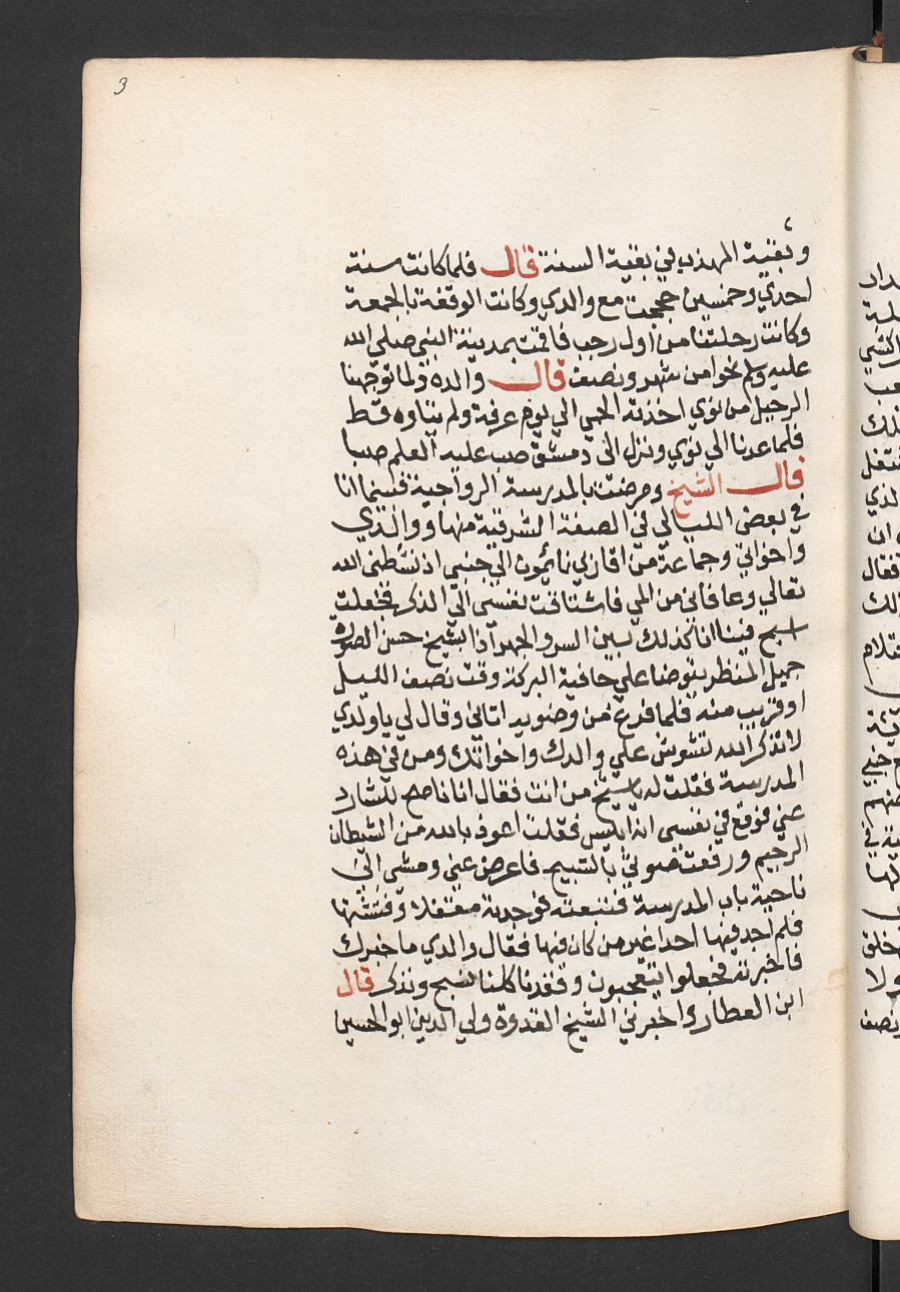 3
وبقية المهذب في بقية السنة قال فلما كانت سنة
احدي وخمسين حججت مع والدي وكانت الوقفة بالجمعة
وكانت رحلتنا من اول رجب فاقمت بمدينة النبي صلي الله
عليه وسلم نحوا من شهر ونصف قال والده ولما توجهنا
الرحيل من نوي اخذته الحمي الي يوم عرفة ولم يتاوه قط
فلما عدنا الي نوي ونزل الي دمشق صب عليه العلم صبا
قال الشيخ ومرضت بالمدرسة الرواحية فبينما انا
في بعض الليالي في الصفة الشرقية منها ووالدي
واخواني وجماعة من اقاربي نائمون الي جنبي اذ نشطني الله
تعالي وعافاني من المي فاشتاقت نفسي الي الذكر فجعلت
اسبح فبينا انا كذلك بين السر والجهر اذا الشيخ حسن الصورة
جميل المنظر يتوضا علي حافية البركة وقت نصف الليل
او قريب منه فلما فرغ من وضويه اتاني وقال لي يا ولدي
لا تذكر الله تشوش علي والدك واخوانك ومن في هذه
المدرسة فقلت له يا شيخ من انت فقال انا ناصح
عني فوقع في نفسي انه ابليس فقلت اعوذ بالله من الشيطان
الرجيم ورفعت صوتي بالتسبيح فاعرض عني ومشي الي
ناحية باب المدرسة فتتبعته فوجدته مقفلا وفتشتها
فلم اجد فيها احدا غير من كان فيها فقال والدي ما خبرك
فاخبرته فجعلوا يتعجبون وقعدنا كلنا نسبح ونذكر قال
ابن العطار واخبرني الشيخ القدوة ولي الدين ابو الحسين